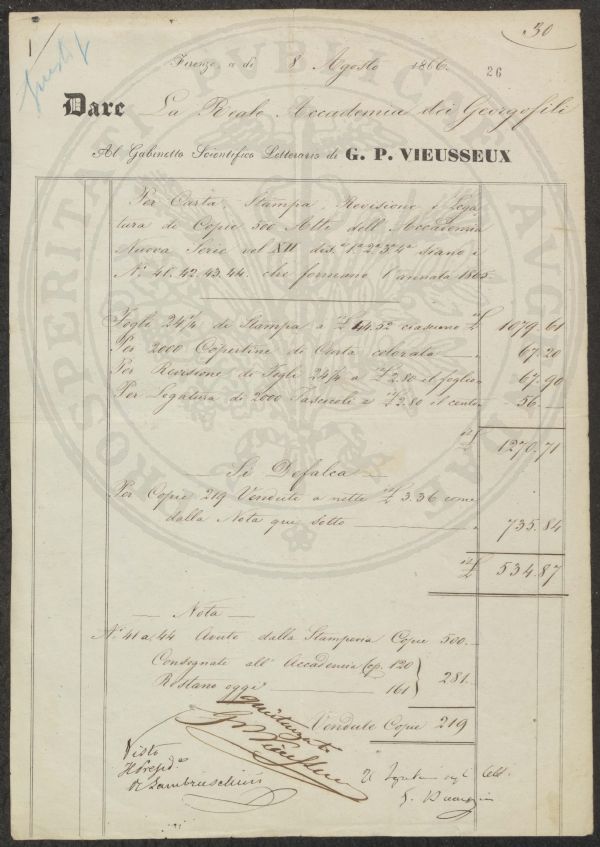 30
Firenze, a dì 8 Agosto 1866.
26
Dare La Reale Accademia dei Georgofili
Al Gabinetto Scientifico Letterario di G. P. VIEUSSEUX
Per Carta, Stampa, Revisione e Lega
tura di Copie 500 Atti dell'Accademia
Nuova Serie vol XII dis.e 1a 2a 3a 4a siano i
Ni 41. 42. 43. 44. che formano l'annata 1865
Fogli 24 1/4 di Stampa a £ 44.52 ciascuno £ 1079.61
Per 2000 Copertine di Carta colorata — " 67.20
Per Revisione di Fogli 24 1/4 a £ 2.80 il foglio " 67.90
Per Legatura di 2000 Fascicoli a £ 2.80 il cento " 56.—
£ 1270.71
— Si Defalca —
Per Copie 219 Vendute a nette £ 3.36 come
dalla Nota qui sotto — " 735.84
£ 534.87
— Nota —
Ni 41 a 44 Avute dalla Stamperia Copie 500.
Consegnate all'Accademia Cop. 120
Restano oggi — 161 } 281.
Vendute Copie 219
quietanzato
Vieusseux
Visto
Il Presid.e
R Lambruschini
PROSPERITATI PUBLICAE AUGENDAE